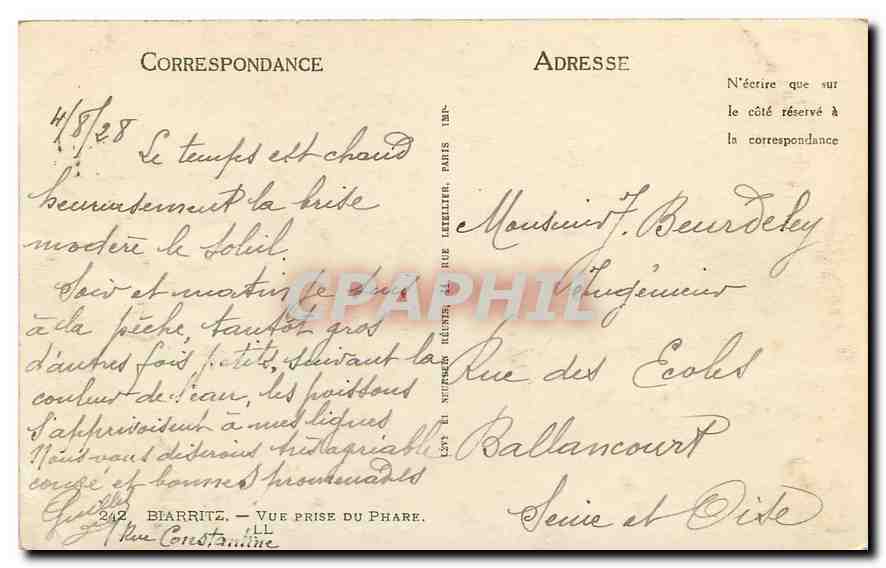 CORRESPONDANCE
4/8/28
Le temps est chaud
heureusement la brise
modère le soleil.
Soir et matin je suis
à la pêche, tantôt gros
d'autres fois petits, suivant la
couleur de l'eau, les poissons
s'apprivoisent à mes lignes
Nous vous disirons très agriable
congé et bonnes promenades
242 BIARRITZ. — VUE PRISE DU PHARE.
LL
Rue Constantine
LEVY ET NEURDEIN RÉUNIS, 44 RUE LETELLIER, PARIS IMP.
ADRESSE
N'écrire que sur
le côté réservé à
la correspondance
Monsieur J. Beurdeley
Ingénieur
Rue des Ecoles
Ballancourt
Seine et Oise
CPAPHIL